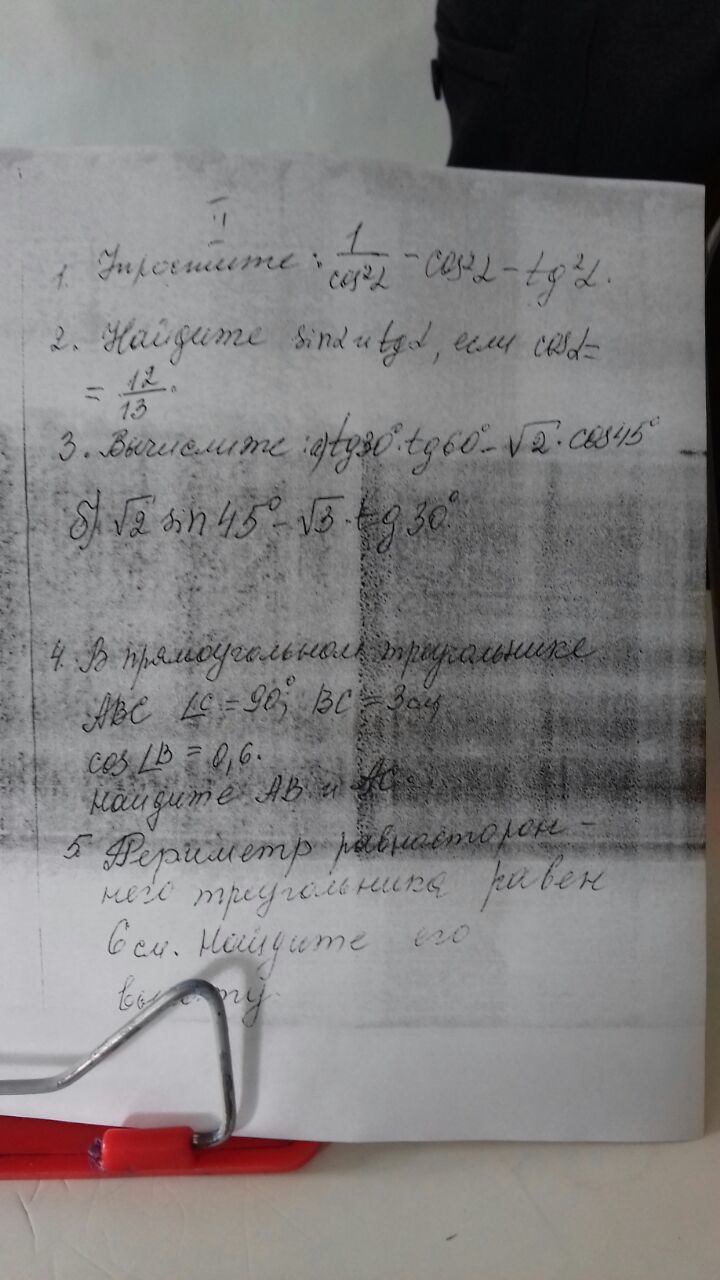 II
1. Упростите: 1/cos²α - cos²α - tg²α.
2. Найдите sinα и tgα, если cosα=
= 12/13.
3. Вычислите: а) tg30°·tg60° - √2·cos45°
б) √2 sin 45° - √3·tg 30°.
4. В прямоугольном треугольнике
ABC ∠C = 90°, BC = 3см
cos∠B = 0,6.
найдите AB и AC.
5. Периметр равносторон-
него треугольника равен
6 см. Найдите его
высоту.